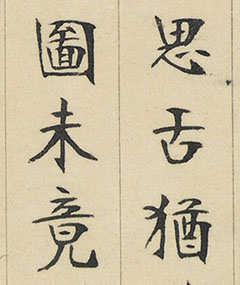 思舌猶
圖未竟